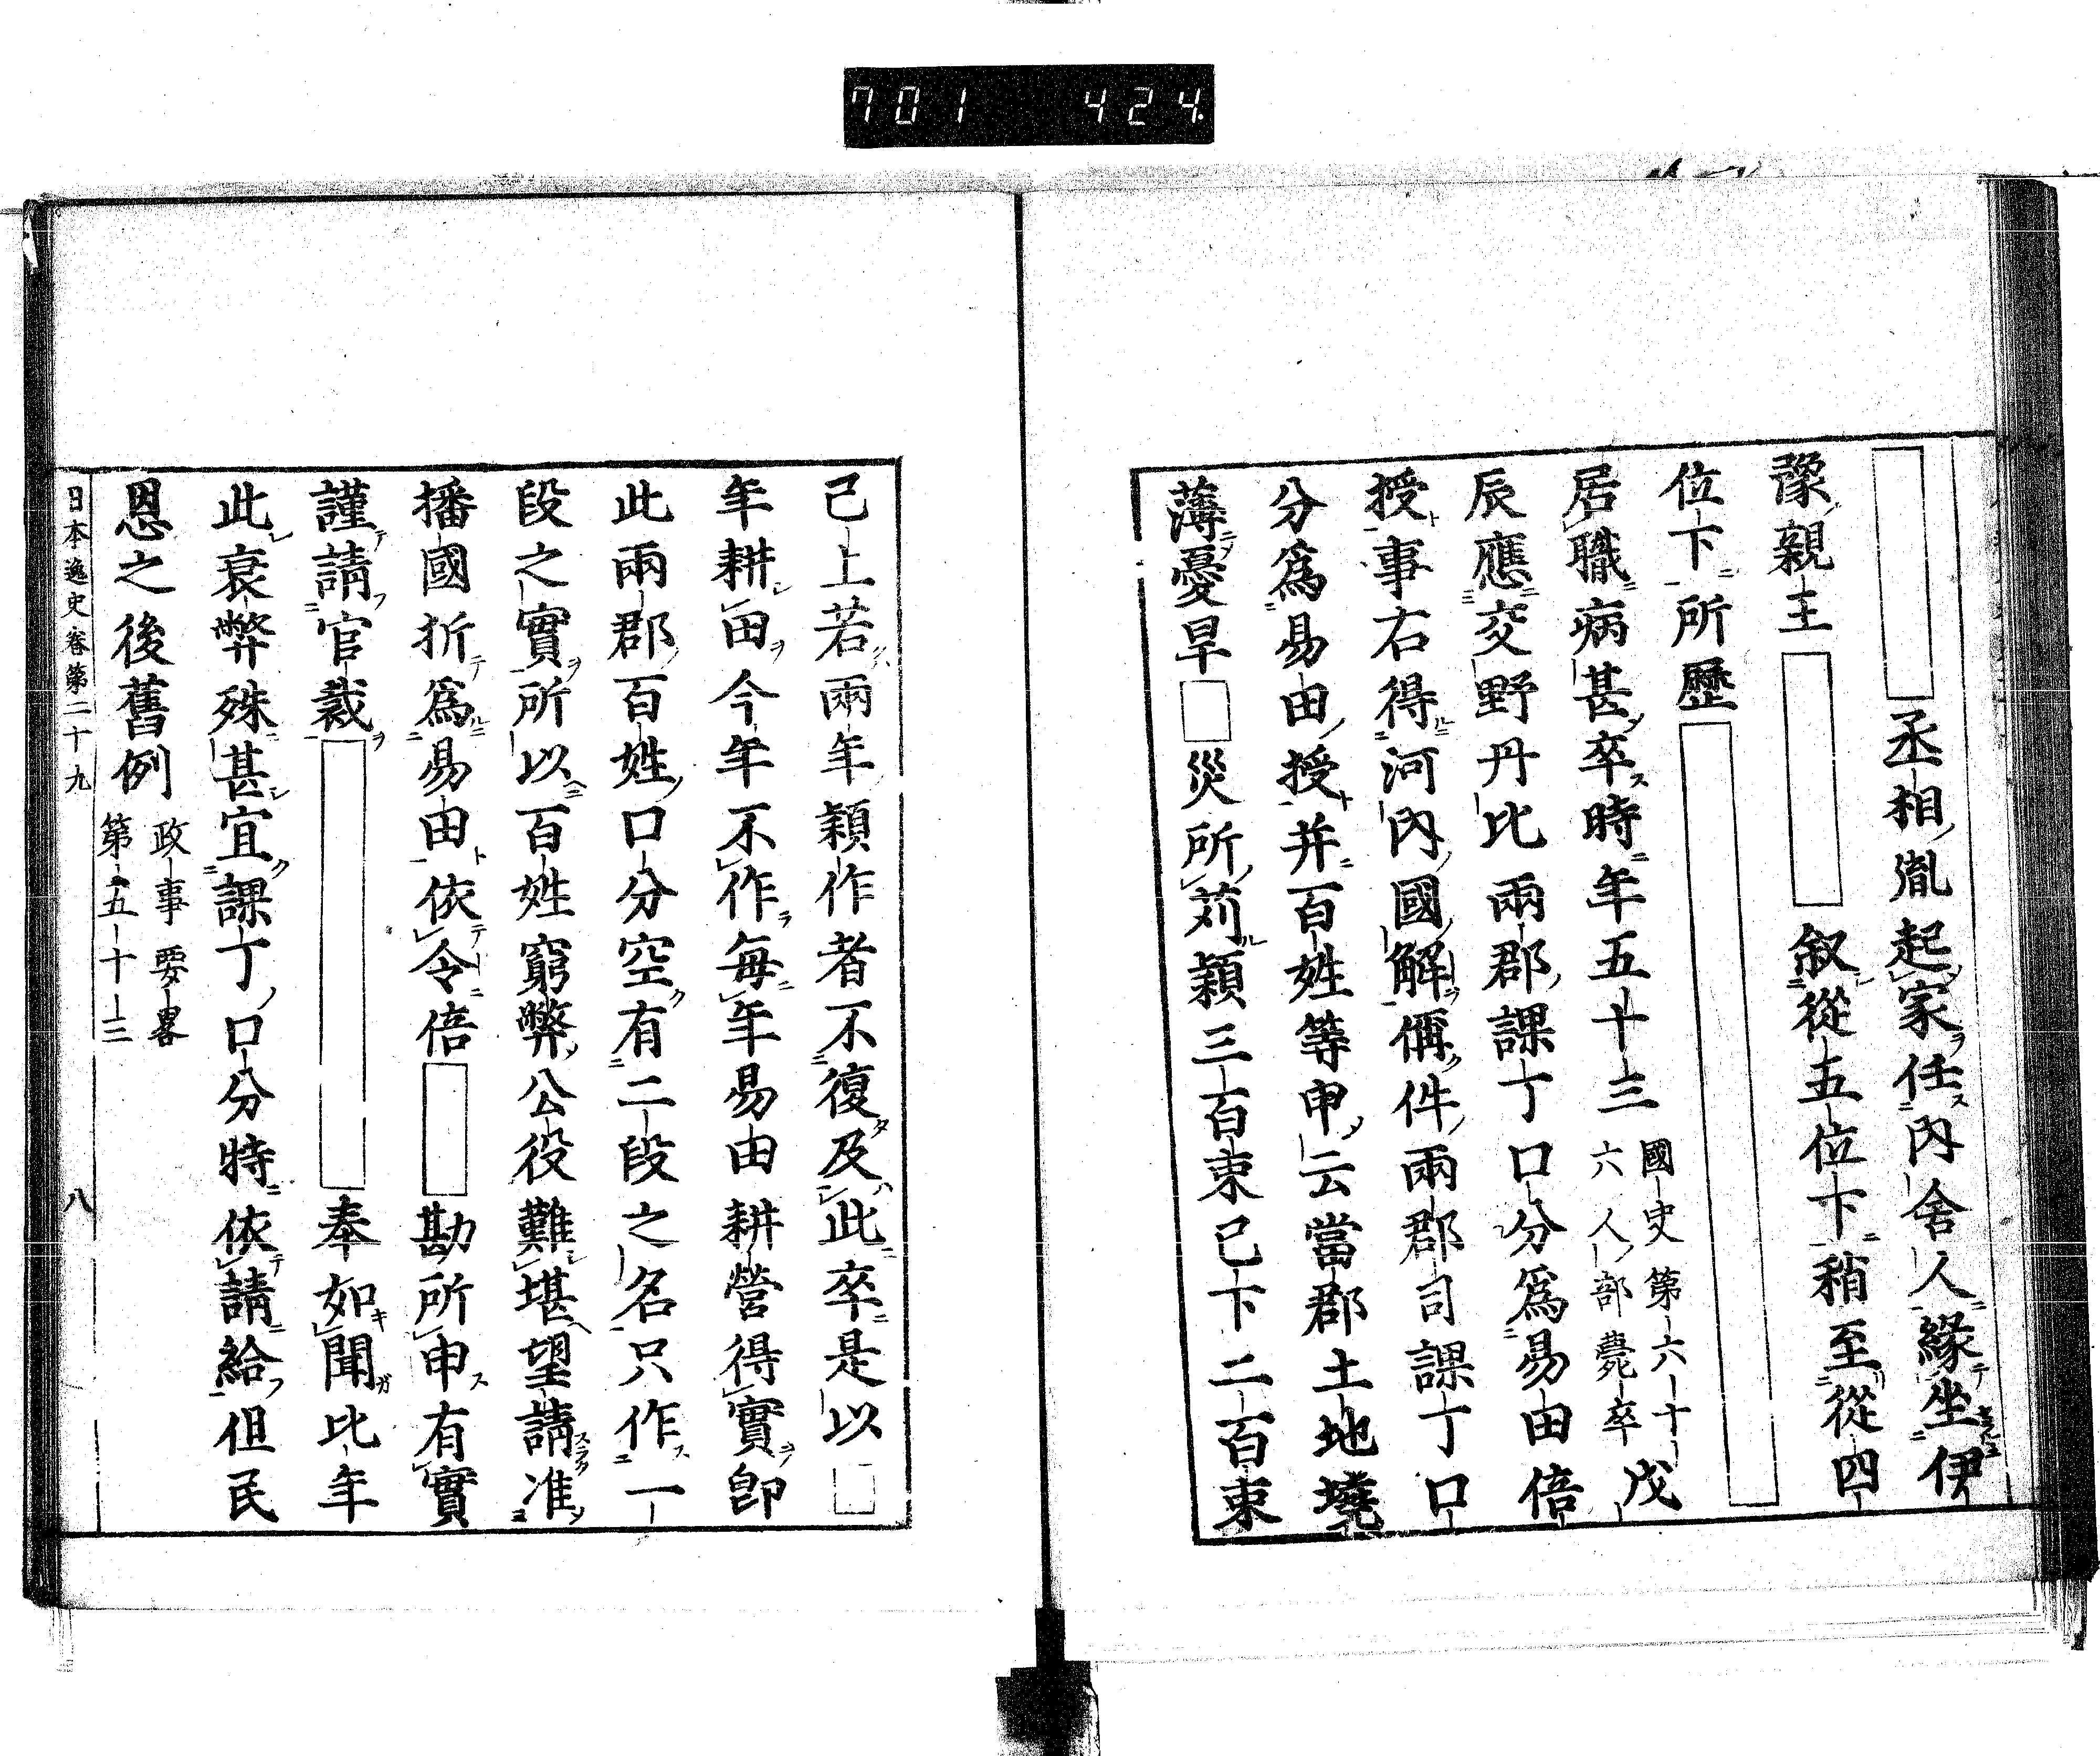 701 424.
丞相胤起家任內舍人緣坐伊
豫親王 叙從五位下稍至從四
位下所歷
居職病甚卒時年五十三 國史第六十六人部薨卒 戊
辰應交野丹比兩郡課丁口分爲易田倍
授事右得河內國解偁件兩郡司課丁口
分爲易田授并百姓等申云當郡土地墝
薄憂旱 災所苅穎三百束已下二百束
已上若兩年穎作者不復及此卒是以
年耕田今年不作每年易田耕營得實卽
此兩郡百姓口分空有二段之名只作一
段之實所以百姓窮弊公役難堪望請准
播國折爲易田依令倍 勘所申有實
謹請官裁 奉如聞比年
此衰弊殊甚宜課丁口分特依請給但民
恩之後舊例 政事要畧第五十三
日本逸史卷第二十九 八